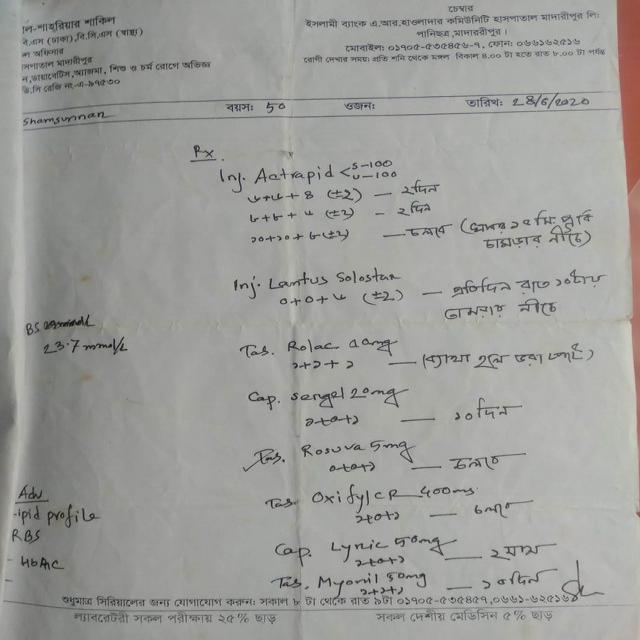 ল-শাহরিয়ার শাকিল
বি.এস (ঢাকা), বি.সি.এস (স্বাস্থ্য)
ল অফিসার
সপাতাল মাদারীপুর
ন, ডায়াবেটিস, অ্যাজমা, শিশু ও চর্ম রোগে অভিজ্ঞ
ডি.সি রেজি নং-এ-৯৭৫৩০
চেম্বার
ইসলামী ব্যাংক এ.আর.হাওলাদার কমিউনিটি হাসপাতাল মাদারীপুর লিঃ
পানিছত্র, মাদারীপুর।
মোবাইল: ০১৭০৫-৫৩৫৪৫৬-৭, ফোন: ০৬৬১৬২৫১৬
রোগী দেখার সময়: প্রতি শনি থেকে মঙ্গল বিকাল ৪.০০ টা হতে রাত ৮.০০ টা পর্যন্ত
Shamsunnan বয়স: 50 ওজন: তারিখ: 28/6/2020
Rx
Inj. Actrapid < S-100
U-100
৬+৬+৪ (±2) — ২দিন
৮+৮+৬ (±2) — ২দিন
১০+১০+৮ (±2) — চলবে
চামড়ার নীচে)
Inj. Lantus Solostar
0+0+৬ (±2) — প্রতিদিন রাত ১০টায়
চামড়ার নীচে
BS
23.7 mmol/L
Tab. Rolac 10mg
১+১+১ — (ব্যাথা হলে ভরা পেটে)
Cap. Sergel 20mg
১+০+১ — ১০দিন
Tab. Rosuva 5mg
০+০+১ — চলবে
Adv
Lipid profile
RBS
- HbA1C
Tab. Oxifyl CR 400mg
১+০+১ — চলবে
Cap. Lyric 50mg
১+০+১ — ২মাস
Tab. Myonil 50mg
১+১+১ — ১০দিন
শুধুমাত্র সিরিয়ালের জন্য যোগাযোগ করুন: সকাল ৮ টা থেকে রাত ৯টা ০১৭০৫-৫৩৫৪৫৭, ০৬৬১-৬২৫১৬
ল্যাবরেটরী সকল পরীক্ষায় ২৫% ছাড় সকল দেশীয় মেডিসিন ৫% ছাড়